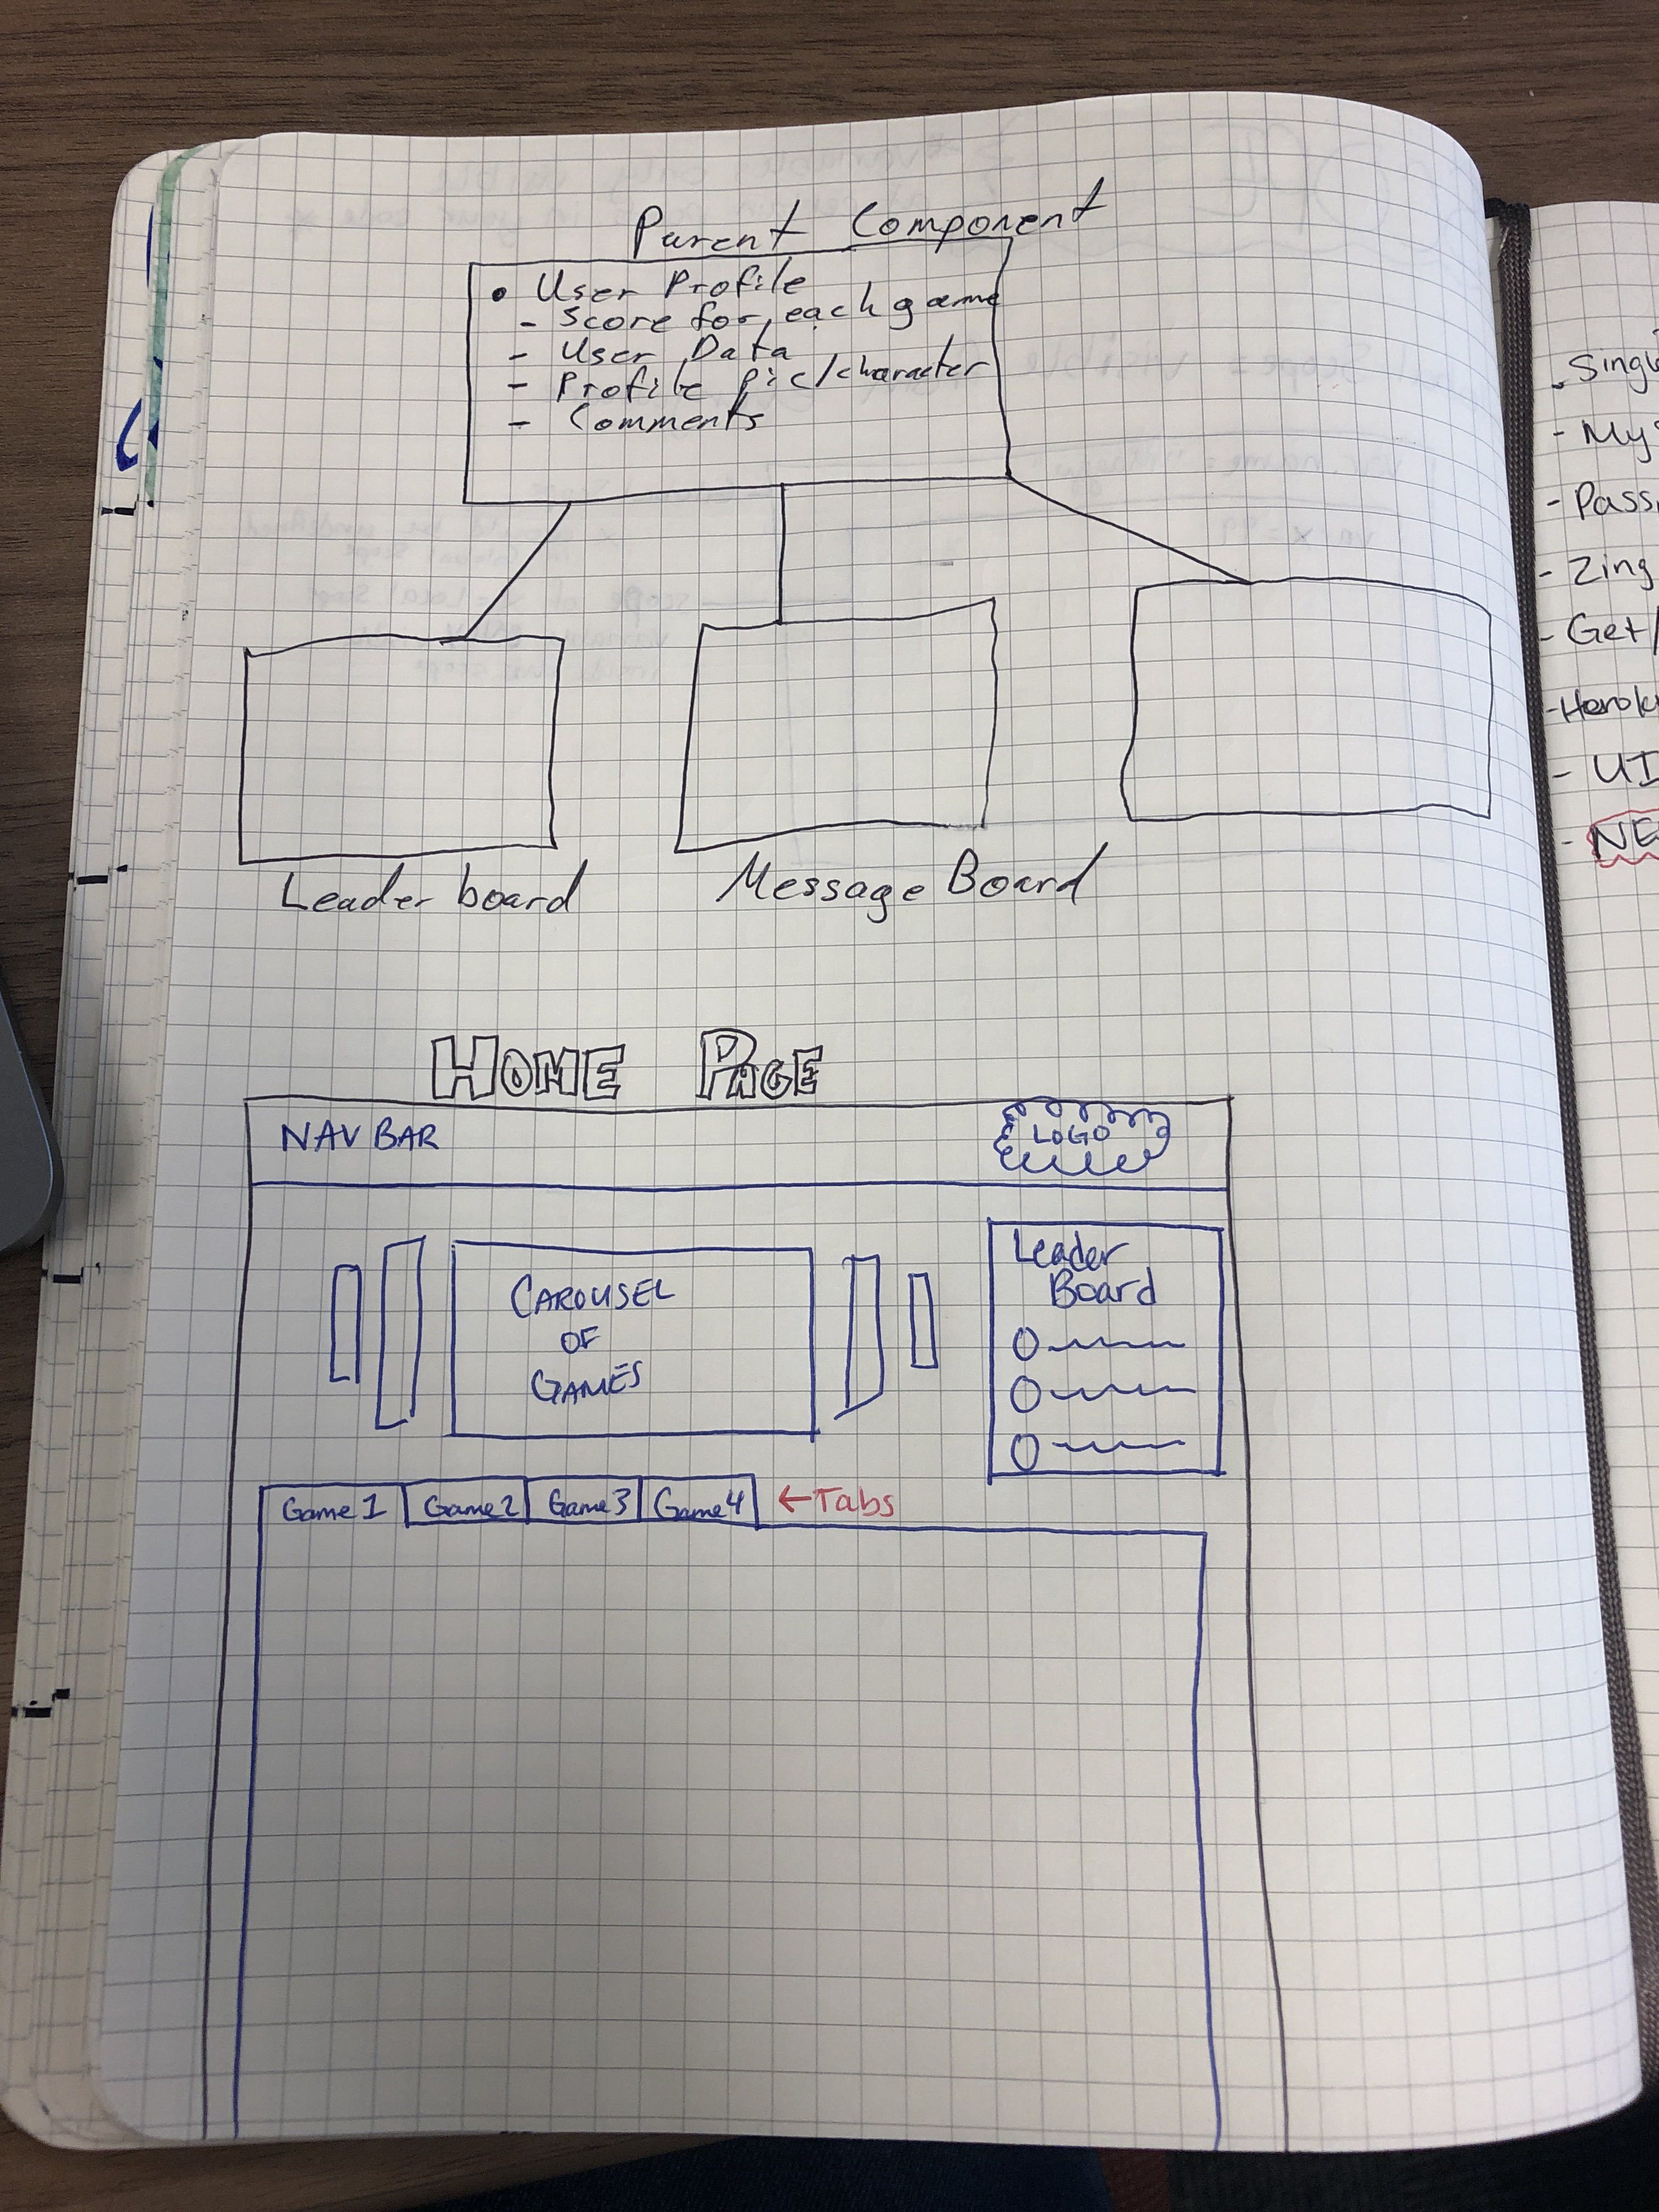 Parent Component
• User Profile
- Score for each game
- User Data
- Profile pic/character
- Comments
Leader board
Message Board
HOME PAGE
NAV BAR
LOGO
CAROUSEL
OF
GAMES
Leader
Board
Game 1
Game 2
Game 3
Game 4
←Tabs
- My
- Pass
- Zing
- Get/
- UI
- NE